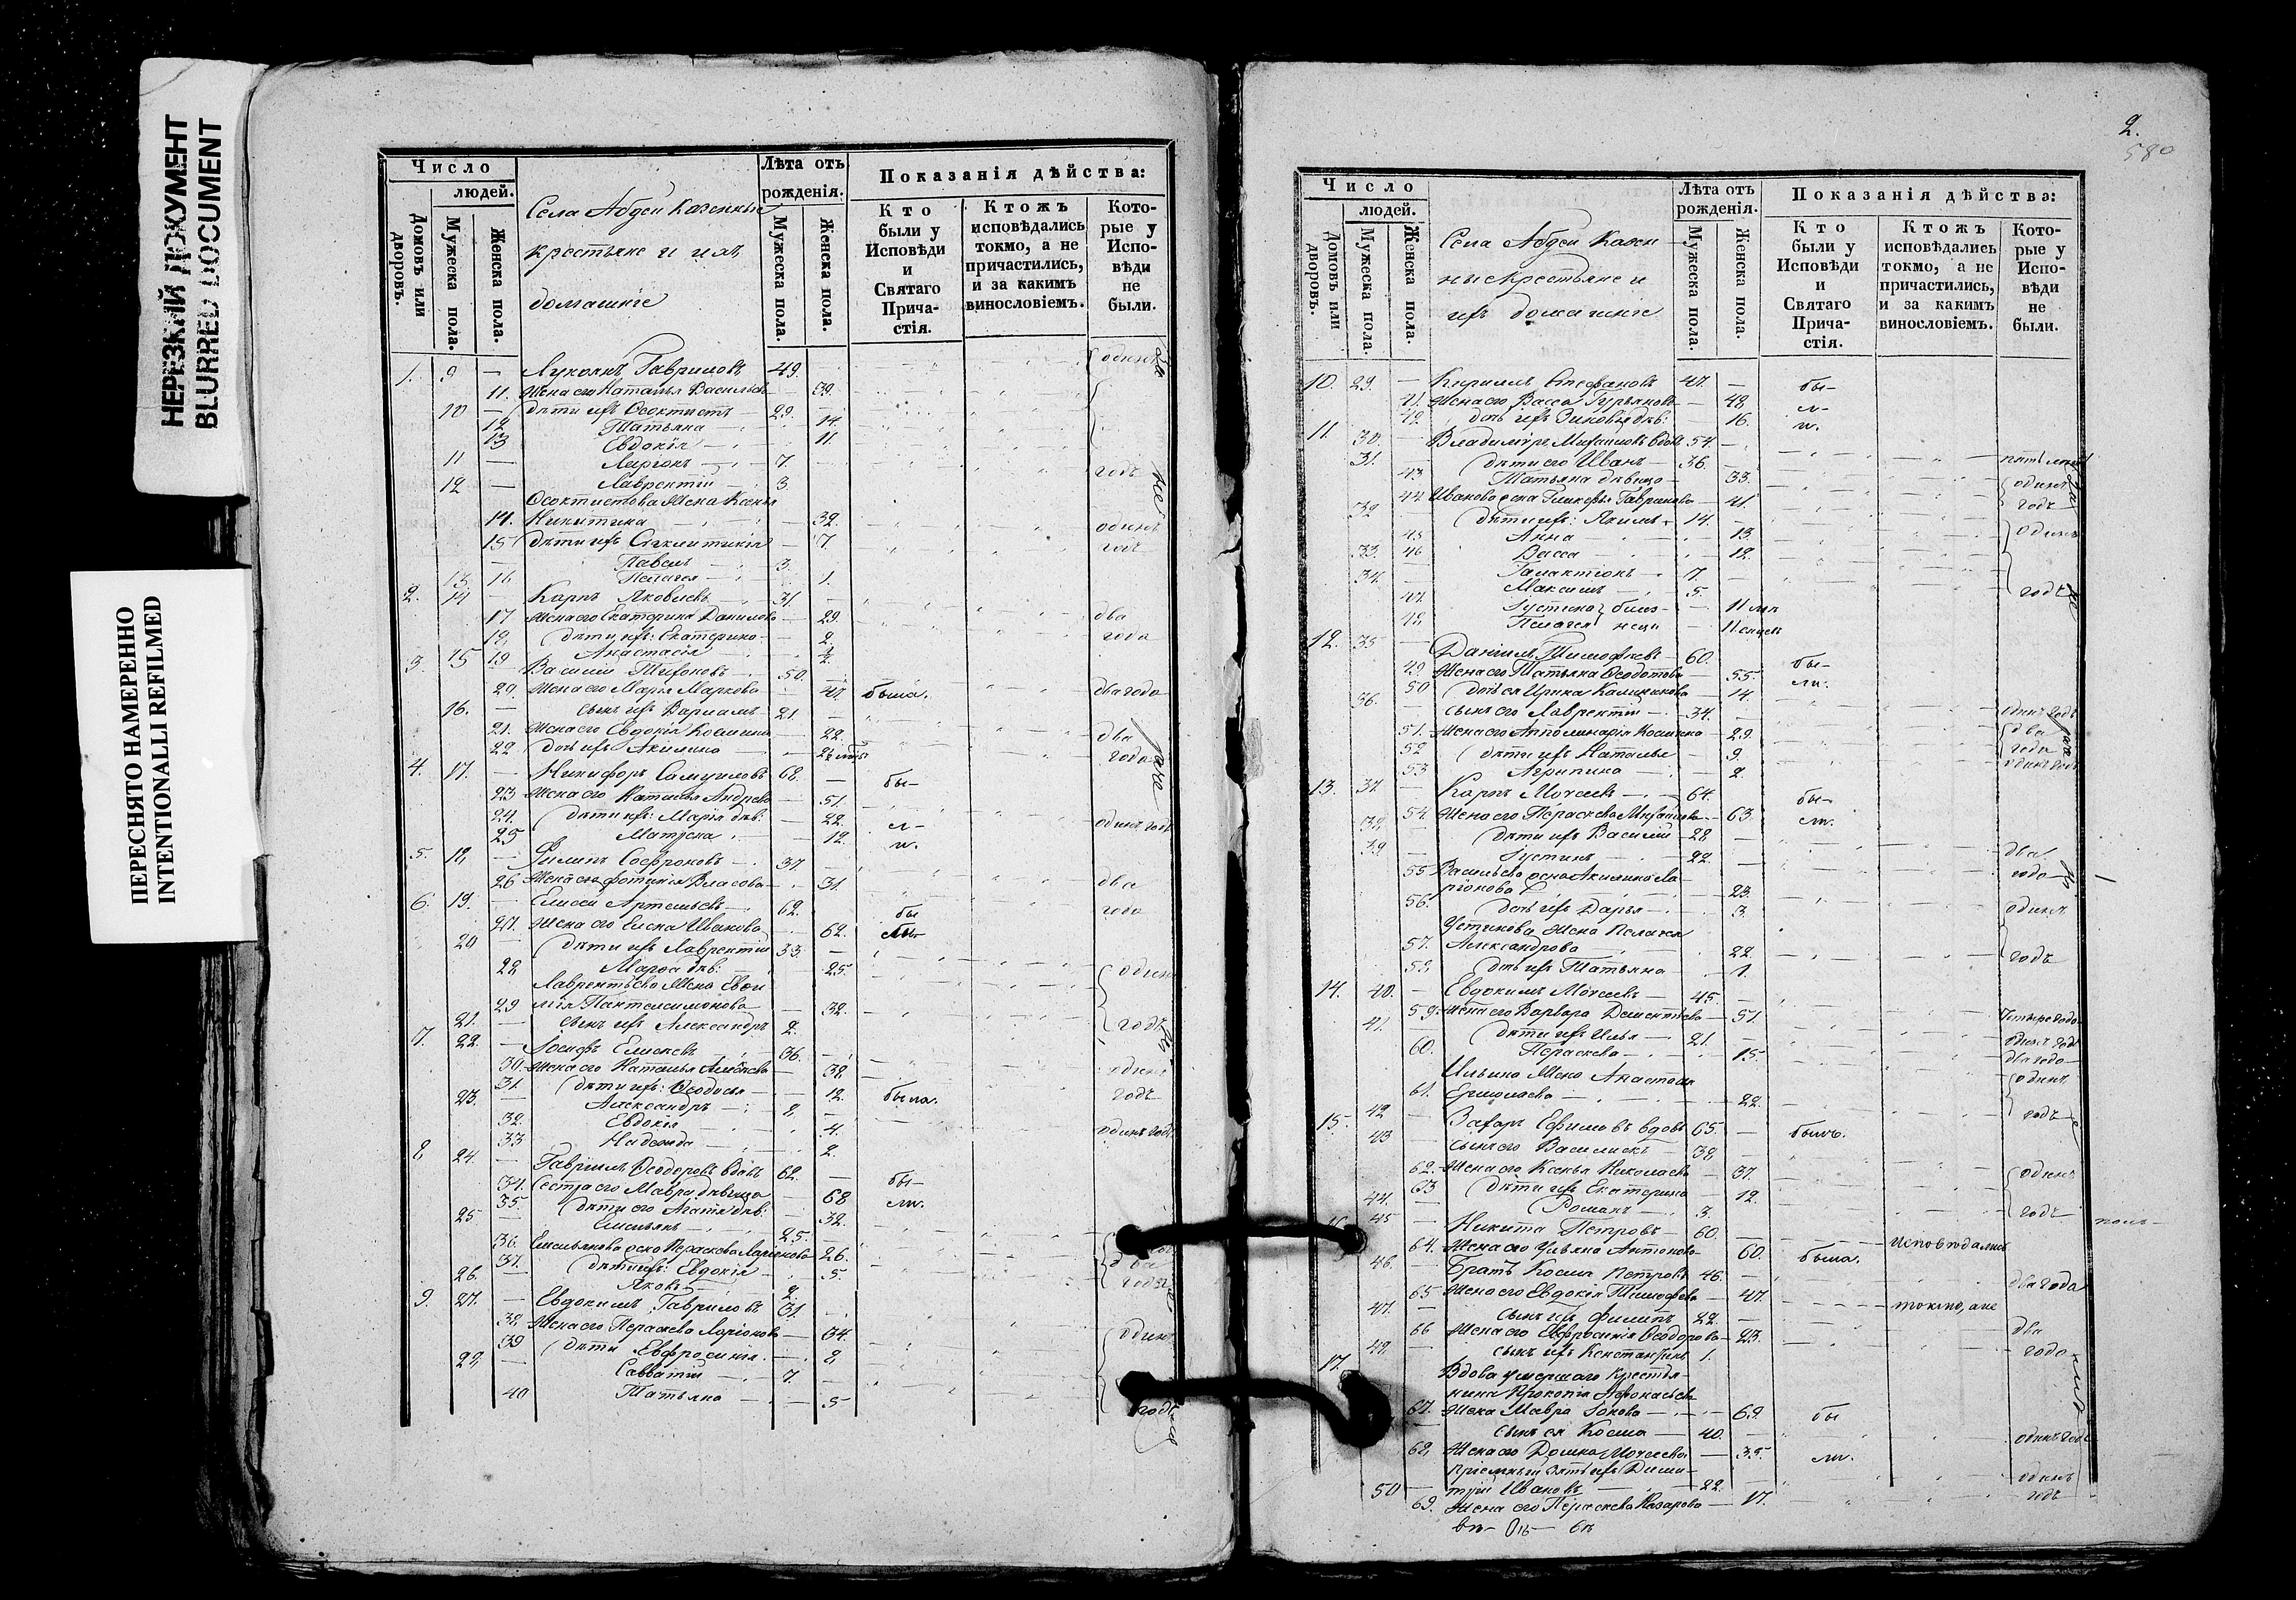 НЕРЕЗКИЙ ДОКУМЕНТ
BLURRED DOCUMENT
ПЕРЕСНЯТО НАМЕРЕННО
INTENTIONALLI REFILMED
Число
людей.
Домовъ или дворовъ.
Мужеска пола.
Женска пола.
Села Абдей Казенные
крестьяне и ихъ
домашніе
Лѣта отъ рожденія.
Мужеска пола.
Женска пола.
Показанія дѣйства:
Кто были у Исповѣди и Святаго Прича- стія.
Ктожъ исповѣдались токмо, а не причастились, и за какимъ винословіемъ.
Кото- рые у Испо- вѣди не были.
1. 9 — Лукоянъ Гавриловъ 49.
11. Жена его Наталья Васильева 39.
10 — дѣти ихъ Ѳеоктистъ 29.
12 Татьяна 14.
13 Евдокія 11.
11 — Ларіонъ 7.
12 — Лаврентій 3.
Ѳеоктистова Жена Ксенья
14. Никитина 32.
15 дѣти ихъ 7.
Павелъ 3.
13 16 Пелагея 1.
2. 14 — Карпъ Яковлевъ 31.
17 Жена его Екатерина Данилова 29. два
18 дѣти ихъ: Екатерина 2. года
19 Анастасія ½
3. 15 Василій Тихоновъ 50.
20. Жена его Марія Маркова 47. была. два года
16. — сынъ ихъ Варламъ 21.
21. Жена его Евдокія Козмина 22. два
22 дочь ихъ Акилина года
4. 17. — Никифоръ Самуиловъ 68. бы-
23 Жена его Наталья Андреева 51.
24. дѣти ихъ: Марія дѣв: 22. л-
25 Матрена 12. и. одинъ годъ
5. 18 — Филипъ Софроновъ 37.
26 Жена его Фотинія Власова 31. два
6. 19. — Елисей Артемьевъ 62. бы года
27. Жена его Елена Иванова 62. ли
20 — дѣти ихъ Лаврентій 33.
28 Марѳа дѣв: 25. одинъ
Лаврентьева Жена Евѳи-
29 мія Пантелеимонова 32.
21. — сынъ ихъ Александръ 2. годъ
7. 22. — Іосифъ Елисеевъ 36.
30. Жена его Наталья Алексеева 38. одинъ
31. дѣти ихъ: Ѳеодосья 12. была. годъ
23. — Александръ 8.
32. Евдокія 4.
33 Надежда 2. одинъ годъ
8 24. — Гавріилъ Ѳеодоровъ вдовъ 62. бы-
34. Сестра его Мавра дѣвица 68 ли.
35. дѣти его Агаѳія дѣв: 32.
25 — Емельянъ 25.
36. Емельянова жена Параскева Ларіонова 26.
37. дѣти ихъ: Евдокія 5. два
26. — Яковъ 2. года
9. 27. — Евдокимъ Гавриловъ 31.
38 Жена его Параскева Ларіонова 34. одинъ
39 дѣти Евфросинія 8
28 — Савватій 7.
40 Татьяна 5 годъ
2.
580
Число
людей.
Домовъ или дворовъ.
Мужеска пола.
Женска пола.
Села Абдей Казен-
ные крестьяне и
ихъ домашніе
Лѣта отъ рожденія.
Мужеска пола.
Женска пола.
Показанія дѣйства:
Кто были у Исповѣди и Святаго Прича- стія.
Ктожъ исповѣдались токмо, а не причастились, и за какимъ винословіемъ.
Кото- рые у Испо- вѣди не были.
10. 29. — Кириллъ Стефановъ 47. бы-
41. Жена его Васса Гурьянова 48 л-
42. дочь ихъ Зиновья дѣв: 16. и.
11. 30. — Владиміръ Михаиловъ вдовъ 54.
31. — дѣти его Иванъ 36. пять лѣтъ
43 Татьяна дѣвица 33. одинъ
44 Иванова жена Гликерья Гаврилова 41. годъ
32 — дѣти ихъ: Якимъ 14.
45 Анна 13. одинъ
46 Васса 12.
33. Галактіонъ 7.
34. Максимъ 5. годъ
47. Іустина близ- 11
48. Пелагея нецы 11
12. 35 — Даніилъ Тимофеевъ 60. бы-
49. Жена его Татьяна Ѳеодотова 55. ли.
50 дочь ея Ирина Калиникова 14.
36. — сынъ его Лаврентій 34. одинъ годъ
51. Жена его Апполинарія Козмина 29. два
52 дѣти ихъ Наталья 9. года
53 Агрипина 2. одинъ годъ
13. 37 — Карпъ Моисеевъ 64. бы-
54. Жена его Параскева Михайлова 63. ли.
38. — дѣти ихъ Василій 28
39 — Іустинъ 22. два
55 Васильева жена Акилина Ла- года
ріонова 23.
56. дочь ихъ Дарья 3. одинъ
Устинова жена Пелагея
57. Александрова 22. годъ
58. дочь ихъ Татьяна 1.
14. 40. — Евдокимъ Моисеевъ 45.
59. Жена его Варвара Дементьева 51. четыре года
41. — дѣти ихъ Илья 21. одинъ годъ
60. Параскева 15. два года
Ильина Жена Анастасія одинъ
61. Ермолаева 22.
15. 42 — Захаръ Ефимовъ вдовъ 65. былъ. годъ
43 — сынъ его Василискъ 38
62. Жена его Ксенья Николаева 37. одинъ
63 дѣти ихъ Екатерина 12.
44. — Романъ 3. годъ
16. 45 — Никита Петровъ 60. исповѣдались
64. Жена его Ульяна Антонова 60. была.
46. — Братъ Косма Петровъ 46. два года
65 Жена его Евдокія Тимофеева 47. токмо, а не
47. — сынъ ихъ Филипъ 22.
66 Жена его Евфросинія Ѳеодорова 23. два
48. — сынъ ихъ Константинъ 1. года
17. Вдова умершаго Крестья-
нина Прокопія Афонасьева
67. Жена Мавра Іонова 69. бы
сынъ ея Косма 40. одинъ годъ
68 Жена его Домна Моисеева 35. ли.
Пріемный зять ихъ Дими- одинъ
50 — трій Ивановъ 22. годъ
69. Жена его Параскева Назарова 17.